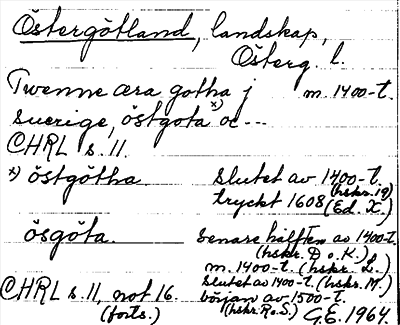 Östergötland, landskap,
Österg. l.
Twenne æra gotha j m. 1400-t.
suerige, östgota x) oc ---
CHRL s. 11.
x) östgötha. slutet av 1400-t. (hskr. 19)
tryckt 1608 (Ed. X.)
ösgöta. senare hälften av 1400-t.
(hskr. D o. K.)
m. 1400-t. (hskr. L.)
slutet av 1400-t. (hskr. M.)
CHRL s. 11, not 16. början av 1500-t.
(forts.) (hskr. R o. S.) G.E. 1964.